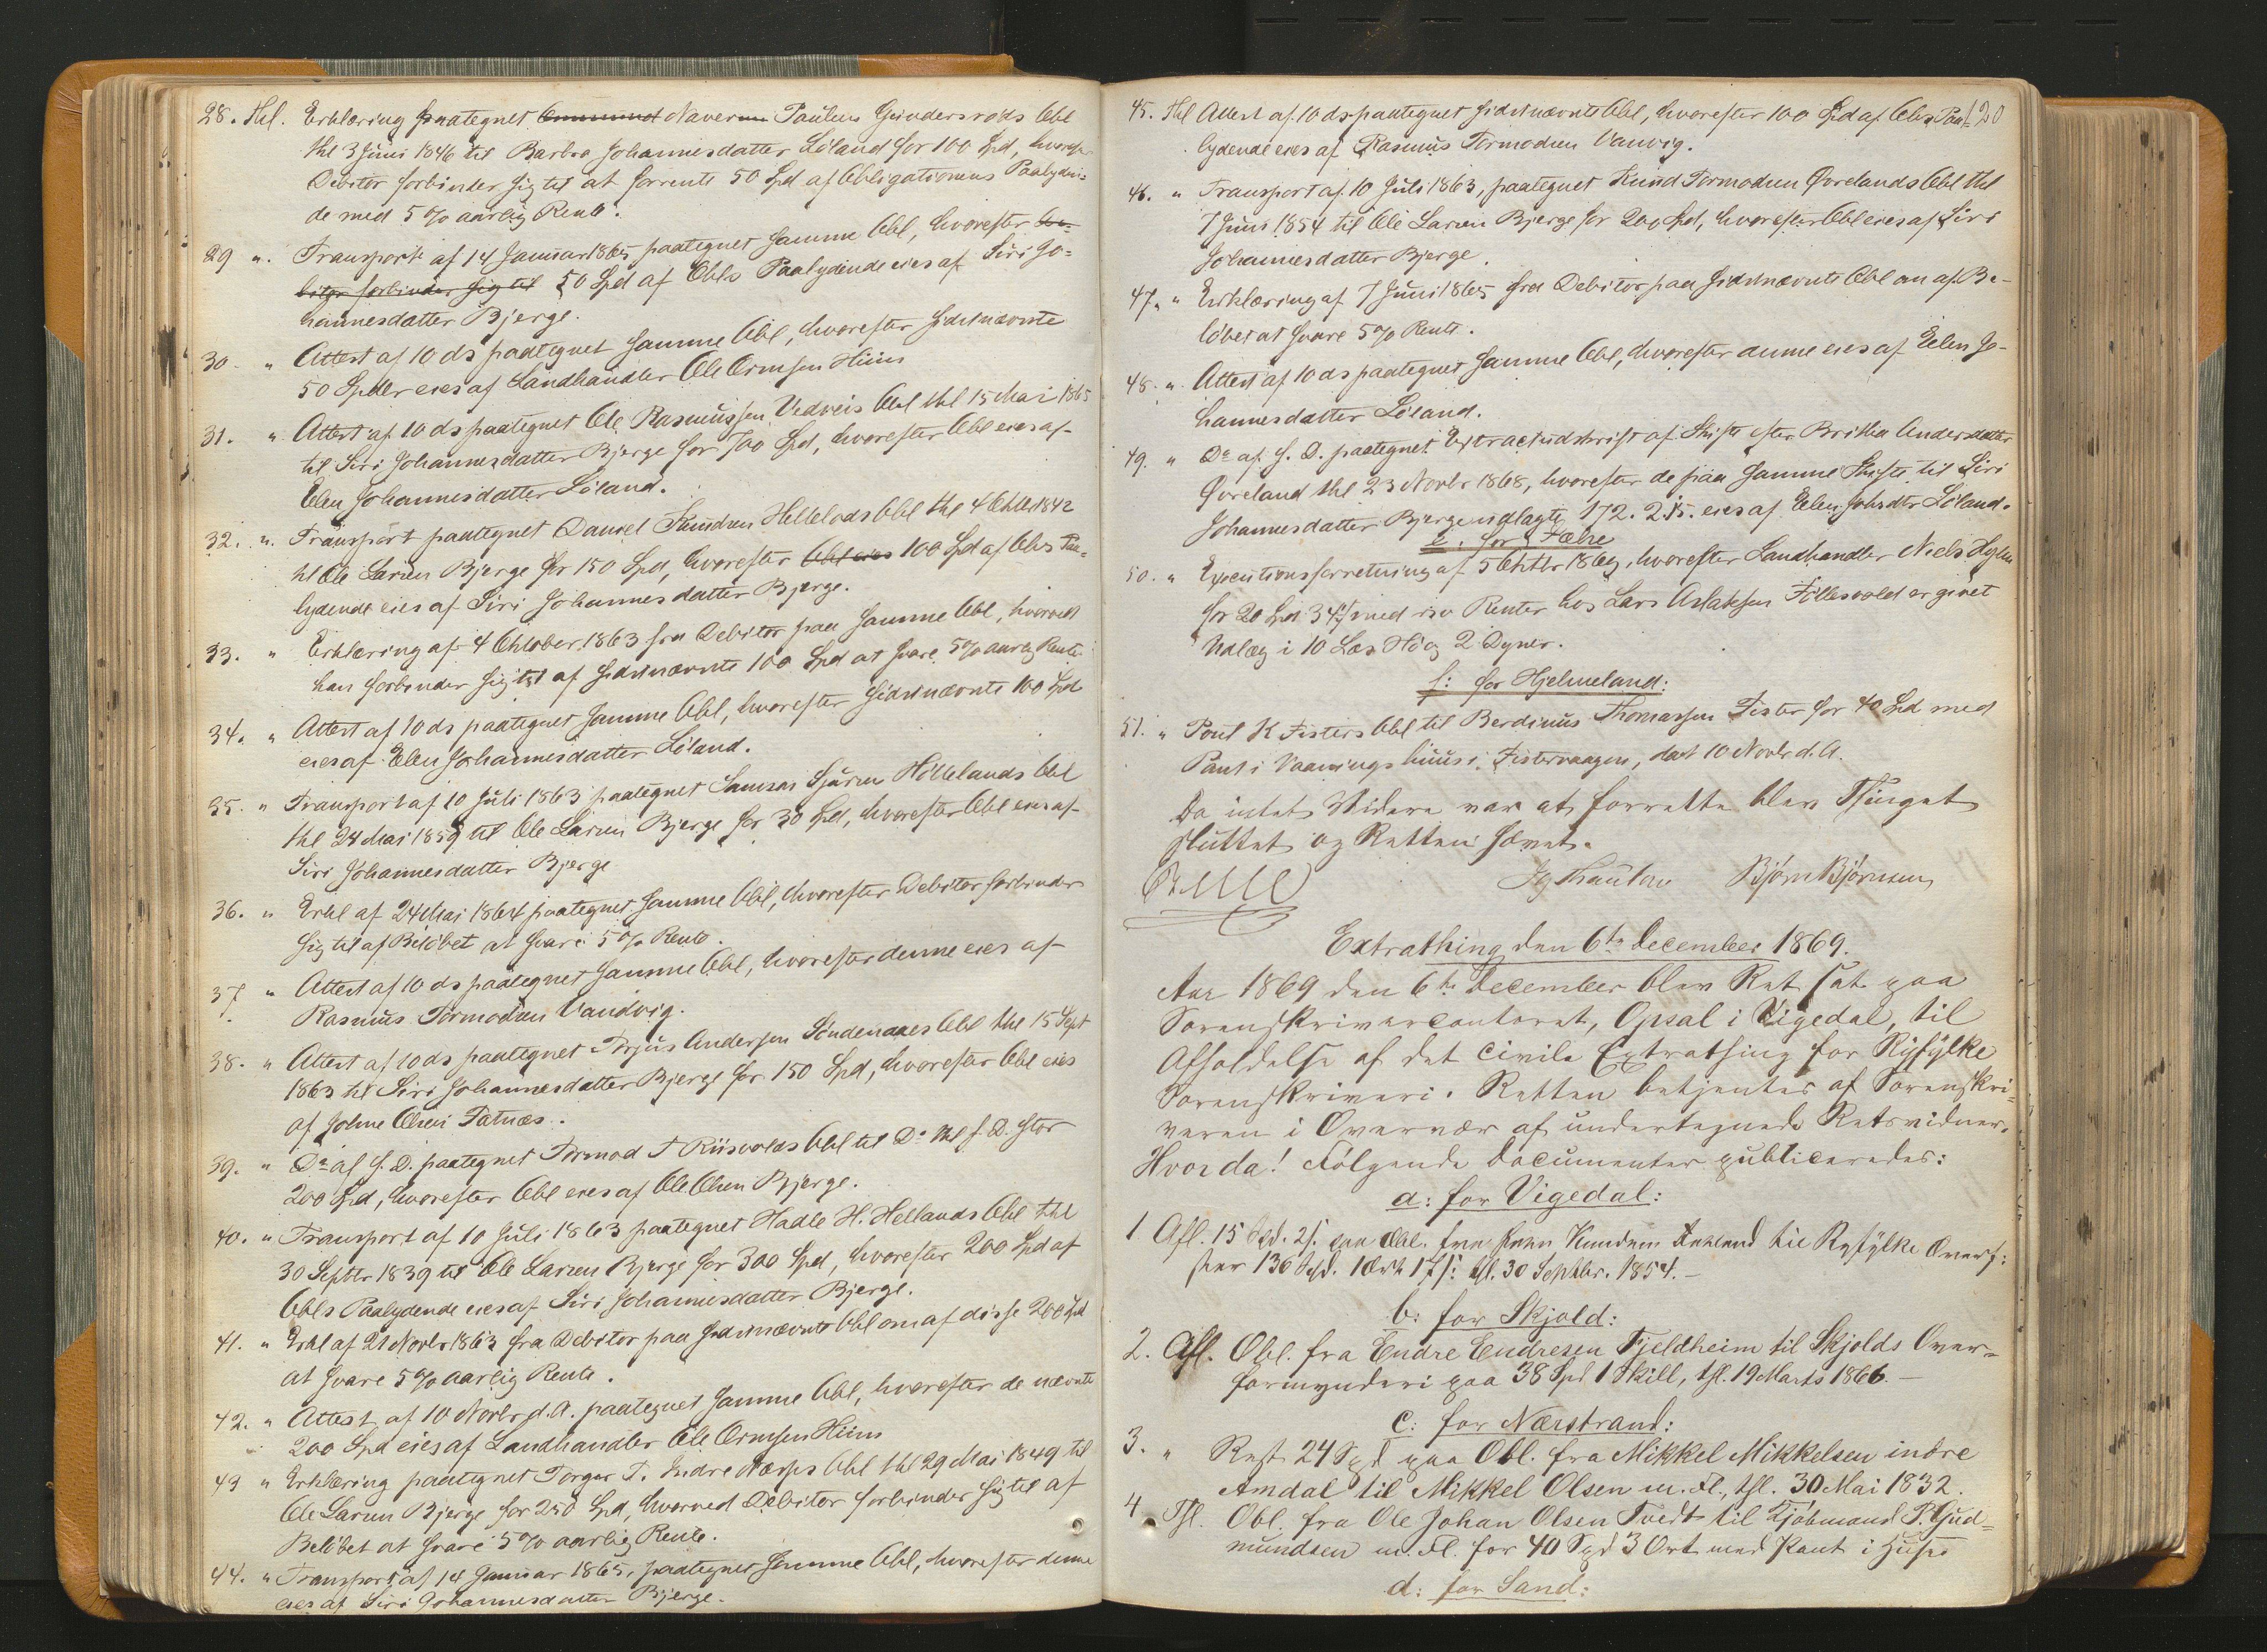 28. Thl. Erklæring paategnet Navern Paulsen Gindersrøds Obl
thl 3 Juni 1846 til Barbra Johannesdatter Løland for 100 Spd, hvorefter
Debitor forbinder sig til at forrente 50 Spd af Obligationens Paalyden-
de med 5 % aarlig Rente.
29 ". Transport af 14 Januar 1865 paategnet samme Obl, hvorefter De-
bitor forbinder sig til 50 Spd af Obls Paalydende eies af Siri Jo=
hannesdatter Bjerge.
30. " Attest af 10 ds paategnet samme Obl, hvorefter sidstnævnte
50 Spdlr eies af Landhandler Ole Ormsen Hiim
31. " Attest af 10 ds paategnet Ole Rasmussen Vedviis Obl thl 15 Mai 1865
til Siri Johannesdatter Bjerge for 700 Spd, hvorefter Obl eies af
Elen Johannesdatter Løland.
32. ". Transport paategnet Daniel Knudsen Hellelads Obl thl 4 Oktb 1842
til Ole Larsen Bjerge for 150 Spd, hvorefter Obl eies 100 Spd af Obls Paa-
lydende eies af Siri Johannesdatter Bjerge.
33. " Erklæring af 4 Oktober 1863 fra Debitor paa samme Obl, hvorved
han forbinder sig til af sidstnævnte 100 Spd at svare 5% aarlig Rente.
34. " Attest af 10 ds paategnet samme Obl, hvorefter sidstnævnte 100 Spd
eies af Elen Johannesdatter Løland.
35. " Transport af 10 Juli 1863 paategnet Samson Sjursen Høllelands Obl
thl 24 Mai 1859 til Ole Larsen Bjerge for 30 Spd, hvorefter Obl eies af
Siri Johannesdatter Bjerge
36. " Erkl af 24 Mai 1864 paategnet samme Obl, hvorefter Debitor forbinder
sig til af Beløbet at svare 5% Rente.
37 " Attest af 10 ds paategnet samme Obl, hvorefter denne eies af
Rasmus Tormodsen Vandvig.
38. " Attest af 10 ds paategnet Torjus Andersen Søndenaaes Obl thl 15 Sept
1863 til Siri Johannesdatter Bjerge for 150 Spd, hvorefter Obl eies
af Johne Olsen Tatnæs.
39. " Do af s. D. paategnet Tormod T Riisvolds Obl til Do thl s. D. stor
200 Spd, hvorefter Obl eies af Ole Olsen Bjerge.
40. " Transport af 10 Juli 1863 paategnet Hadle H. Hellands Obl thl
30 Septbr 1839 til Ole Larsen Bjerge for 300 Spd, hvorefter 200 Spd af
Obls Paalydende eies af Siri Johannesdatter Bjerge.
41. " Erkl af 21 Novbr 1863 fra Debitor paa sidstnævnte Obl om af disse 200 Spd
at svare 5% aarlig Rente.
42. " Attest af 10 Novbr d. A. paategnet samme Obl, hvorefter de nævnte
200 Spd eies af Landhandler Ole Ormsen Hiim
43 " Erklæring paategnet Torger T. Indre Næsses Obl thl 29 Mai 1849 til
Ole Larsen Bjerge for 250 Spd, hvorved Debitor forbinder sig til af
Beløbet at svare 5% aarlig Rente.
44. " Transport af 14 Januar 1865, paategnet samme Obl, hvorefter denne
eies af Siri Johannesdatter Bjerge.
120
45. Thl Attest af 10 ds paategnet sidstnævnte Obl, hvorefter 100 Spd af Obls Paa-
lydende eies af Rasmus Tormodsen Vanvig.
46. " Transport af 10 Juli 1863, paategnet Knud Tormodsen Øvrelands Obl thl
7 Juni 1854 til Ole Larsen Bjerge for 200 Spd, hvorefter Obl eies af Siri
Johannesdatter Bjerge.
47. " Erklæring af 7 Juni 1865 fra Debitor paa sidstnævnte Obl om af Be-
løbet at svare 5% Rente.
48. ". Attest af 10 ds paategnet samme Obl, hvorefter denne eies af Elen Jo-
hannesdatter Løland.
49. " Do af s. D. paategnet Extractudskrift af Skifte efter Britha Andersdatter
Øvreland thl 23 Novbr 1868, hvorefter de paa samme Skifte til Siri
Johannesdatter Bjerge udlagte 172. 2. 15. eies af Elen Johsdtr Løland.
e. for Jælse
50. " Executionsforretning af 5 Oktbr 1869, hvorefter Landhandler Niels
for 20 Spd 34 s med Renter hos Lars Aslaksen Follesvold er givet
Udlæg i 10 Læs Hø og 2 Dyner.
f: for Hjelmeland:
51. " Poul K Fisters Obl til Berdinus Thomassen Fister for 40 Spd med
Pant i Vaaningshuus i Fistervaagen, dat 10 Novbr d. A.
Da intet Videre var at forrette blev Thinget
sluttet og Retten hævet.
Bjørn Bjørnsen
Extrathing den 6te December 1869.
Aar 1869 den 6te December blev Ret sat paa
Sorenskrivercontoret, Opsal i Vigedal, til
Afholdelse af det civile Extrathing for Ryfylke
Sorenskriveri. Retten betjentes af Sorenskri=
veren i Overvær af undertegnede Retsvidner.
Hvor da! Følgende Documenter publiceredes:
a: for Vigedal:
1 Afl. 15 Spd. 2 s. paa Obl. fra Knudsen til Ryfylke Overf:
stor 130 Spd. 1 Ort 17 s: thl. 30 Septbr. 1854. –
b: for Skjold:
2. Afl. Obl. fra Endre Endresen Fjeldheim til Skjolds Over=
formynderi paa 38 Spd 1 Skill, thl. 19 Marts 1866. –
c: for Nærstrand:
3. " Rest 24 Spd paa Obl. fra Mikkel Mikkelsen indre
Amdal til Mikkel Olsen m. Fl., thl. 30 Mai 1832.
4. Thl. Obl. fra Ole Johan Olsen Tvedt til Kjøbmand P. Gud=
mundsen m. Fl. for 40 Spd 3 Ort med Pant i Huse
d: for Sand: